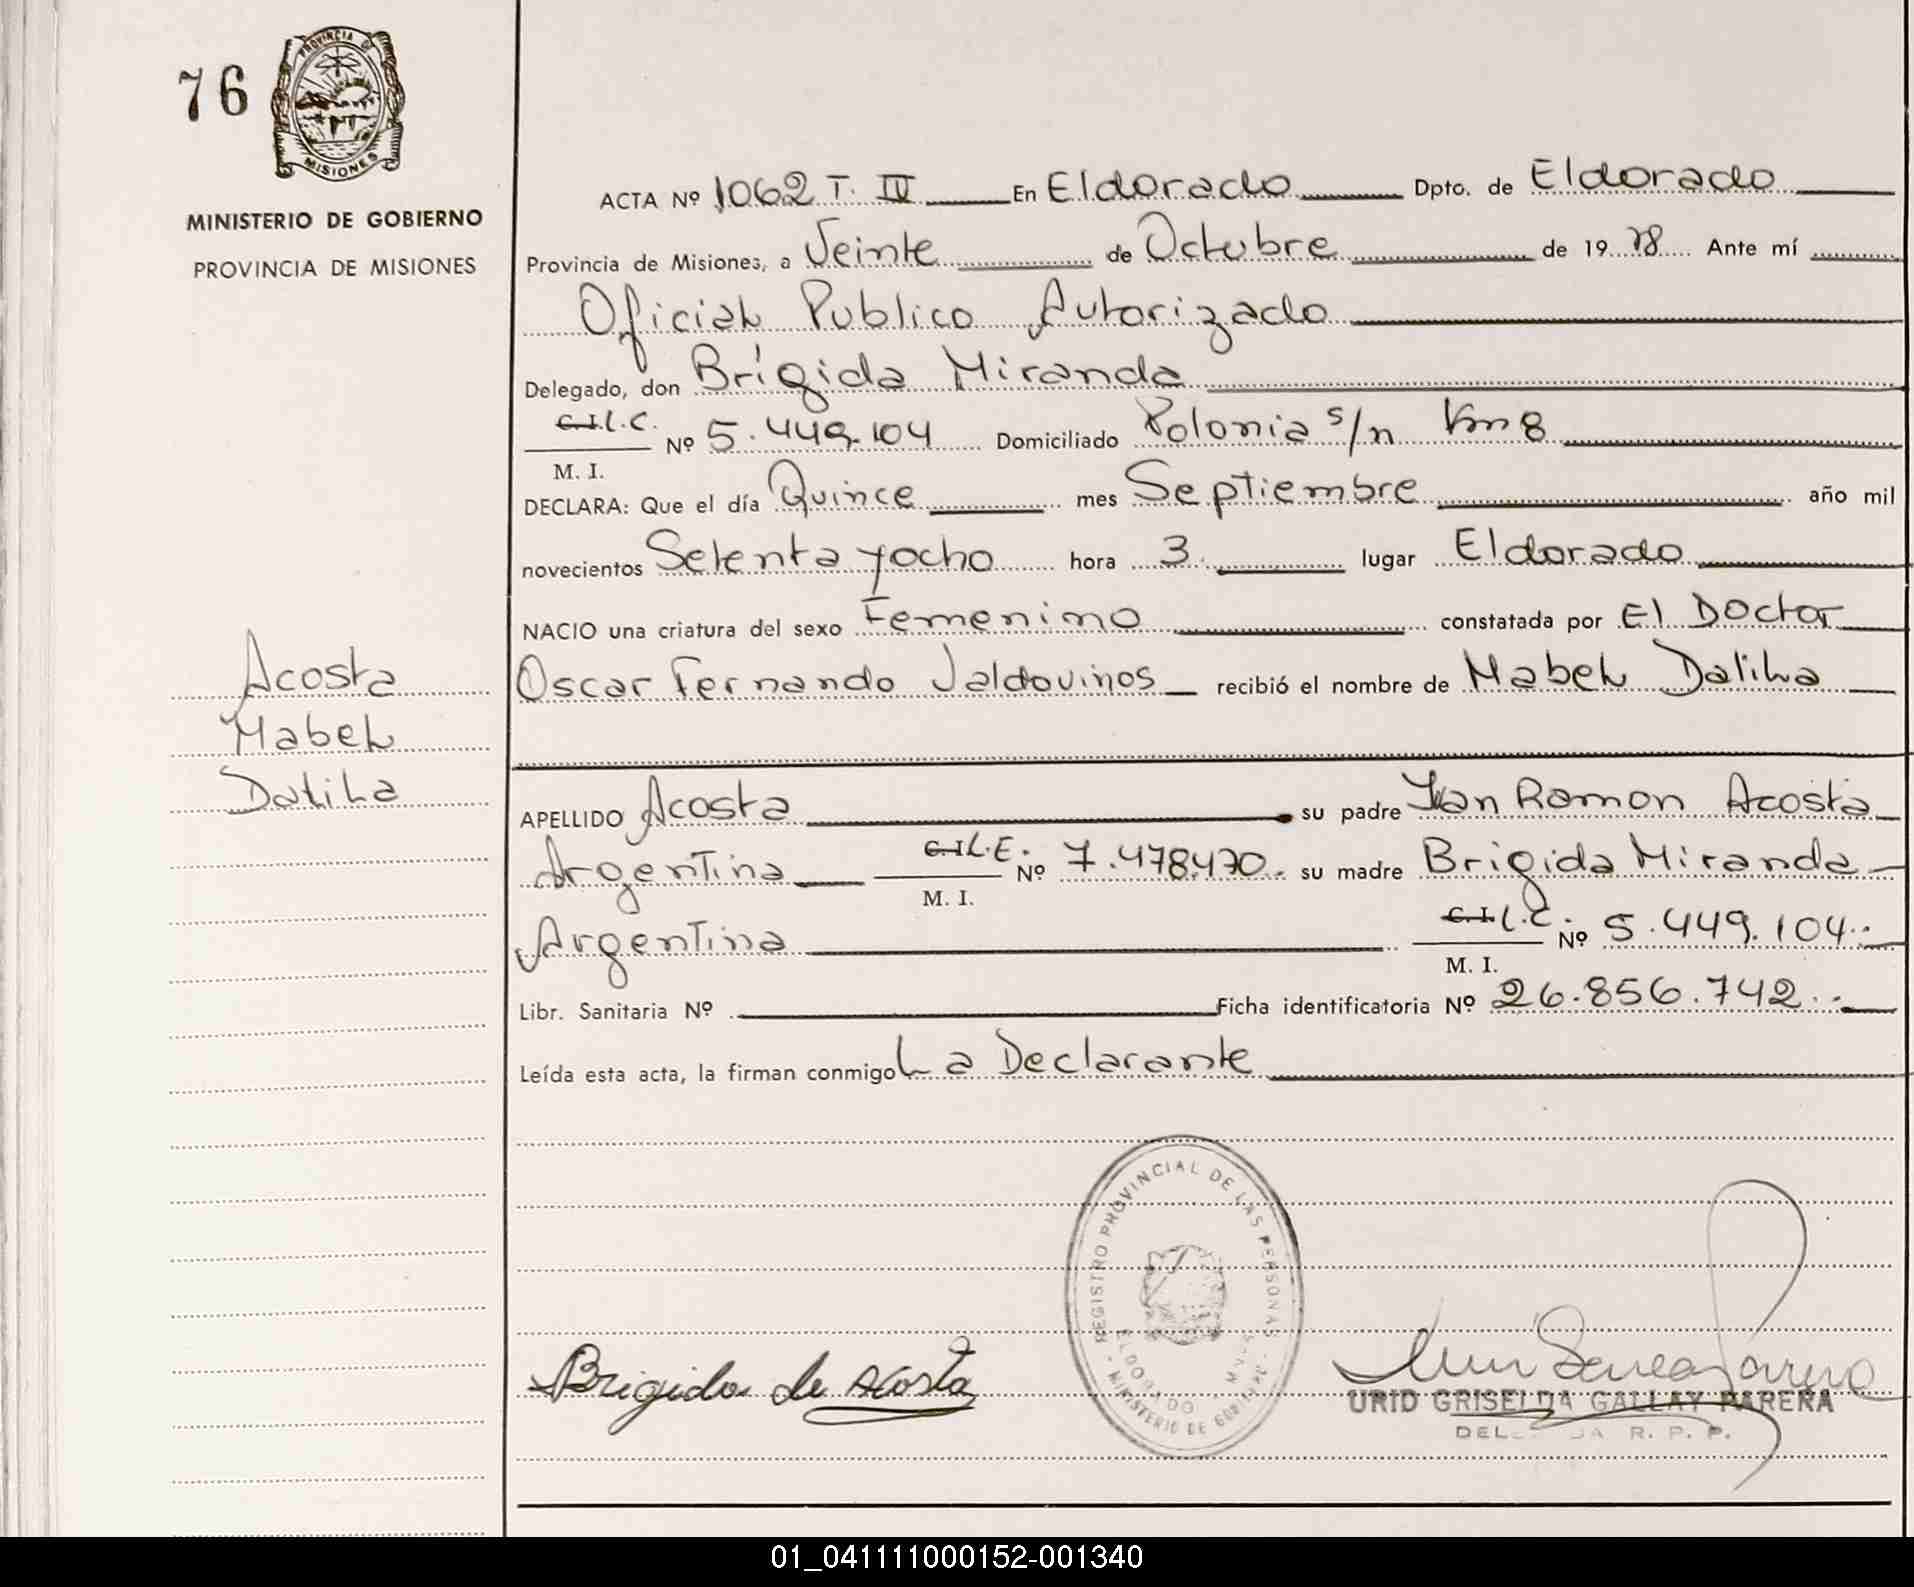 76
PROVINCIA DE
MISIONES
MINISTERIO DE GOBIERNO
PROVINCIA DE MISIONES
Acosta
Mabel
Dalila
ACTA Nº 1062 T. IV En Eldorado Dpto. de Eldorado
Provincia de Misiones, a Veinte de Octubre de 1978 Ante mí
Oficial Publico Autorizado
Delegado, don Brígida Miranda
C.I. L.C. Nº 5.449.104 Domiciliado Polonia s/n Km 8
M. I.
DECLARA: Que el día Quince mes Septiembre año mil
novecientos Setenta y ocho hora 3. lugar Eldorado
NACIO una criatura del sexo Femenino constatada por El Doctor
Oscar Fernando Valdovinos recibió el nombre de Mabel Dalila
APELLIDO Acosta su padre Juan Ramon Acosta
Argentina C.I. L.E. Nº 7.478.470. su madre Brigida Miranda
M. I.
Argentina C.I. L.C. Nº 5.449.104..
M. I.
Libr. Sanitaria Nº Ficha identificatoria Nº 26.856.742..
Leída esta acta, la firman conmigo La Declarante
REGISTRO PROVINCIAL DE LAS PERSONAS
ELDORADO
MINISTERIO DE
Brigida de Acosta
URID GRISELDA GALLAY PARERA
R. P. P.
01_041111000152-001340